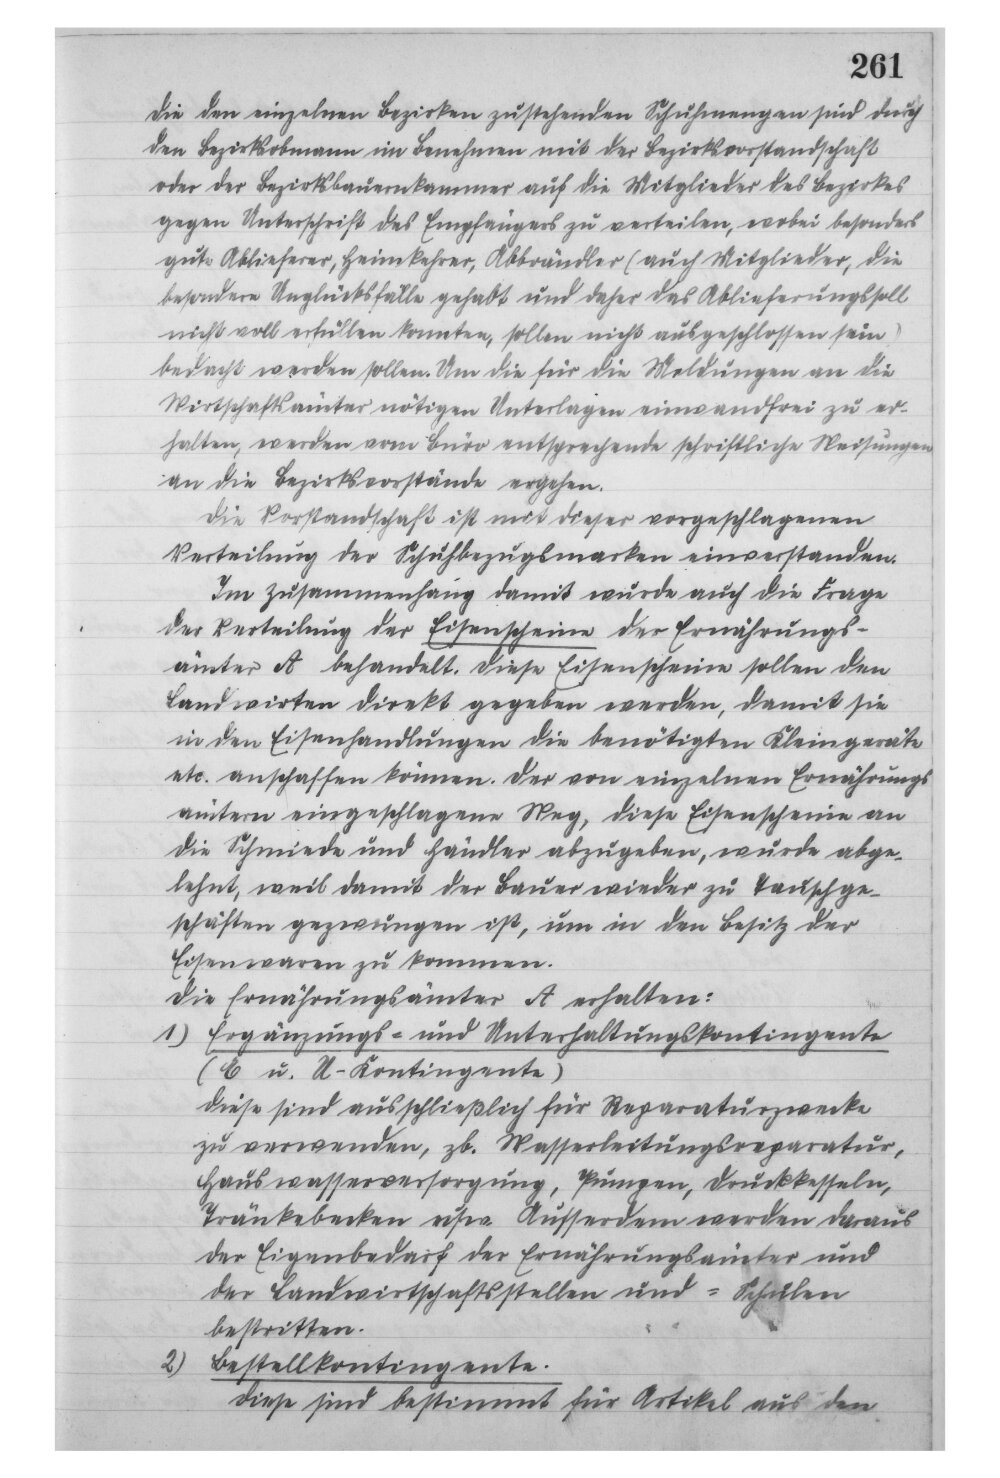 261
die den einzelnen Bezirken zustehenden Schuhmengen sind durch
den Bezirksobmann im Benehmen mit der Bezirksvorstandschaft
oder der Bezirksbauernkammer auf die Mitglieder des Bezirkes
gegen Unterschrift des Empfängers zu verteilen, wobei besonders
gute Ablieferer, Heimkehrer, Abbrändler (auch Mitglieder, die
besondere Unglücksfälle gehabt und daher das Ablieferungssoll
nicht voll erfüllen konnten, sollen nicht ausgeschlossen sein)
bedacht werden sollen. Um die für die Meldungen an die
Wirtschaftsämter nötigen Unterlagen einwandfrei zu er-
halten, werden vom Büro entsprechende schriftliche Weisungen
an die Bezirksvorstände ergehen.
Die Vorstandschaft ist mit dieser vorgeschlagenen
Verteilung der Schuhbezugsmarken einverstanden.
Im Zusammenhang damit wurde auch die Frage
der Verteilung der Eisenscheine der Ernährungs-
ämter A behandelt. Diese Eisenscheine sollen den
Landwirten direkt gegeben werden, damit sie
in den Eisenhandlungen die benötigten Kleingeräte
etc. anschaffen können. Der von einzelnen Ernährungs
ämtern eingeschlagene Weg, diese Eisenscheine an
die Schmiede und Händler abzugeben, wurde abge-
lehnt, weil damit der Bauer wieder zu Tauschge-
schäften gezwungen ist, um in den Besitz der
Eisenwaren zu kommen.
Die Ernährungsämter A erhalten:
1) Ergänzungs= und Unterhaltungskontingente
(E u. U-Kontingente)
Diese sind ausschließlich für Reparaturzwecke
zu verwenden, zb. Wasserleitungsreparatur,
Hauswasserversorgung, Pumpen, Druckkesseln,
Tränkebecken usw. Ausserdem werden daraus
der Eigenbedarf der Ernährungsämter und
der Landwirtschaftsstellen und = Schulen
bestritten.
2) Bestellkontingente.
Diese sind bestimmt für Artikel aus den